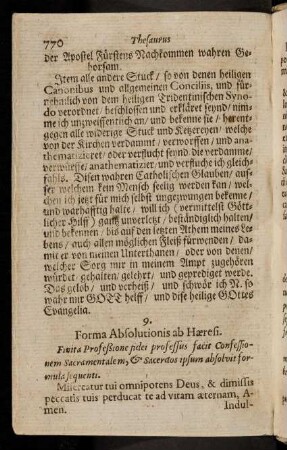 770
Thesaurus
der Apostel Fürstens Nachkommen wahren Ge-
horsam.
Item alle andere Stuck / so von denen heiligen
Canonibus und allgemeinen Conciliis, und für-
nehmlich von dem heiligen Tridentinischen Syno-
do verordnet / beschlossen und erkläret seynd / nim-
me ich ungweiffentlich an / und bekenne sie / herent-
gegen alle widerige Stuck und Ketzereyen / welche
von der Kirchen verdammt / verworffen / und ana-
thematiziert / oder verflucht seynd die verdamme /
verwürffe / anathematiziet und verfluche ich gleich-
fahls. Disen wahren Catholischen Glauben / aus-
ser welchem kein Mensch seelig werden kan / wel-
chen ich jetzt für mich selbst ungezwungen bekenne /
und warhafftig halte / will ich (vermittelst Gött-
licher Hilff) gantz unverletzt / beständiglich halten /
und bekennen / bis auf den letzten Athem meines Le-
bens / auch allen möglichen Fleiß fürwenden / da-
mit er von meinen Unterthanen / oder von denen /
welicher Sorg mir in meinem Ampt zugehören
wurde gehalten / gelehrt / und geprediget werde.
Das gelob / und verheiß / und schwör ich N. so
wahr mir GOTT helff / und dise heilige GOttes
Evangelia.
9.
Forma Absolutionis ab Hæresi.
Finita Professione fidei professus facit Confessio-
nem Sacramentalem, & Sacerdos ipsum absolvit for-
mula sequenti.
Misereatur tui omnipotens Deus, & dimissis
peccatis tuis perducat te ad vitam æternam, A-
men.
Indul-